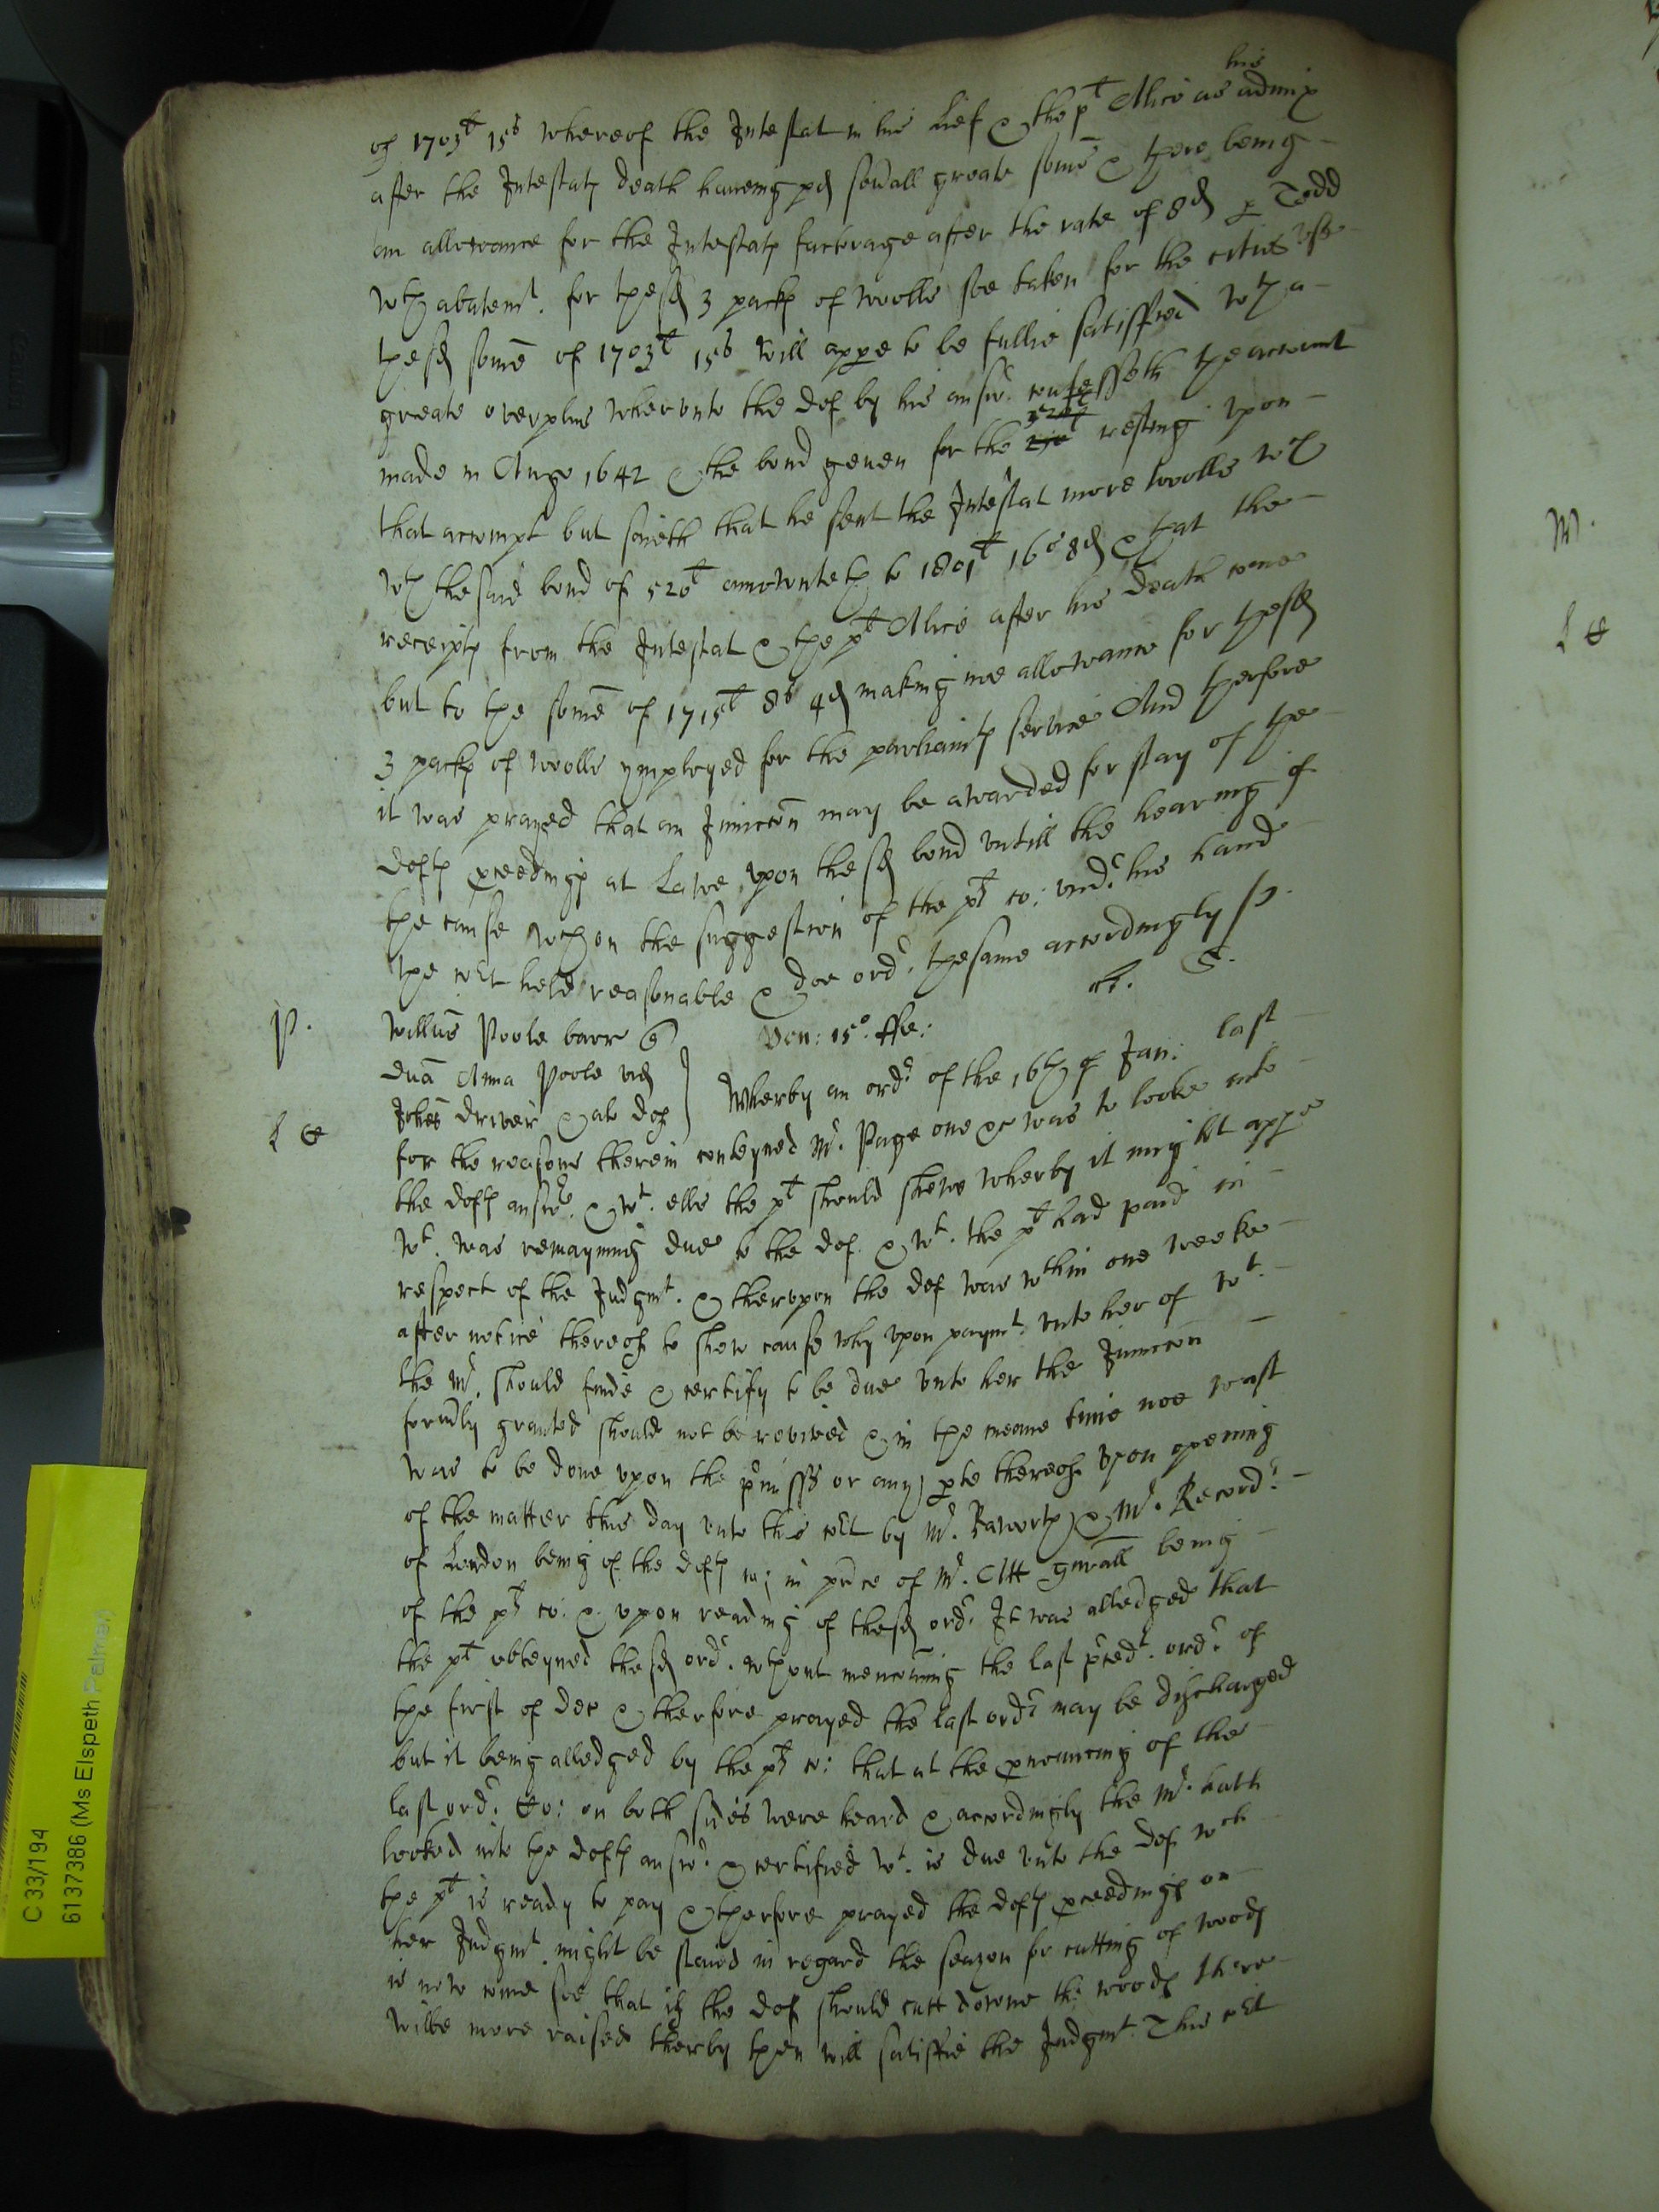 his
of 1703l 15s whereof the Intestat in his lief & the plt Alice as admix
after the Intestats death haueing pd seu'all greate some & there being
an allowance for the Intestats factorage after the rate of 8d p Todd
wth abatemt. for the sd 3 packs of woolle soe taken for the citties vse
the sd some of 1703l 15s will appe to be fullie satisfied wth a
greate overplus wherunto the def by his answ. confesseth the accompt
made in Augo 1642 & the bond geuen for the 520l resting vpon
that accompt but saieth that he sent the Intestat more woolle wch
wth the said bond of 520l amounteth to 1801l 16s 8d & that the
receipts from the Intestat & the plt Alice after his death come
but to the some of 1715l 8s 4d making noe allowance for the sd
3 packs of woolle ymployed for the parliamts service And therfore
it was prayed that an Iniuccon may be awarded for stay of the
defts pceedings at Lawe vpon the sd bond vntill the hearing of
the cause wch on the suggestion of the plts co: vnd'r his hand
the co't held reasonable & doe ord'r. the same accordingly
P.
Willus Poole barr
Ven: 15o. ffe:
Dna Anna Poole vid
Johes Driver & al def
Wherby an ord'r of the 16th of Jan: last
for the reasons therein conteyned Mr. Page one &c was to looke into
the defts answ'r. & wt. elle the plt should shewe wherby it might appe
wt. was remayning due to the def. & wt. the plt had paid in
respect of the Judgmt. & therupon the def was wthin one weeke
after notice thereof to shew cause why vpon paymt. vnto her of wt.
the Mr. should finde & certify to be due vnto her the Iniuccon
form'ly granted should not be revived & in the meane time noe wast
was to be done vpon the p'misses or any pte thereof vpon opening
of the matter this day vnto this co't by Mr. & Mr. Record'r.
of London being of the defts co: in p'nce of Mr. Att gen'all being
of the plts co: & vpon reading of the sd ord'r It was alledged that
the plt obteyned the sd ord'r. wthout mencioning the last p'ced't. ord'r of
the first of Dec & therfore prayed the last ord'r may be discharged
but it being alledged by the plts co: that at the pnouncing of the
last ord'r. co: on both sides were heard & accordingly the Mr. hath
looked into the defts answ'r. & certified wt. is due vnto the def wch
the plt is ready to pay & therfore prayed the defts pceedings on
her Judgmt. might be staied in regard the season for cutting of woods
is now come soe that if the def should cutt downe the woods there
wilbe more raised therby then will satisfie the Judgmt. This co't
M.
C 33/194
6137386 (Ms Elspeth Palmer)